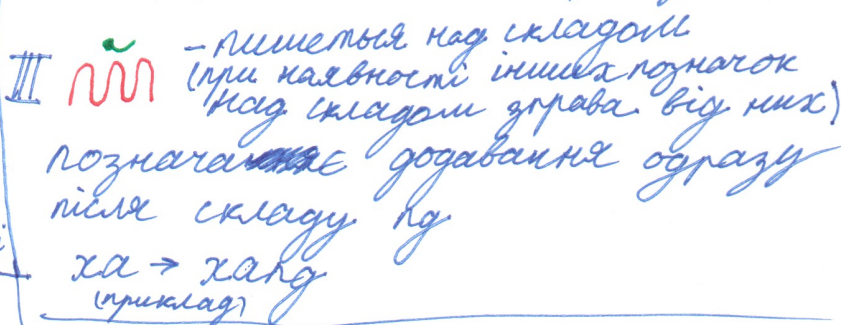 III – пишеться над складом
(при наявності інших позначок
над складом зправа від них)
позначає додавання одразу
після складу ng
ха → хаng
(приклад)